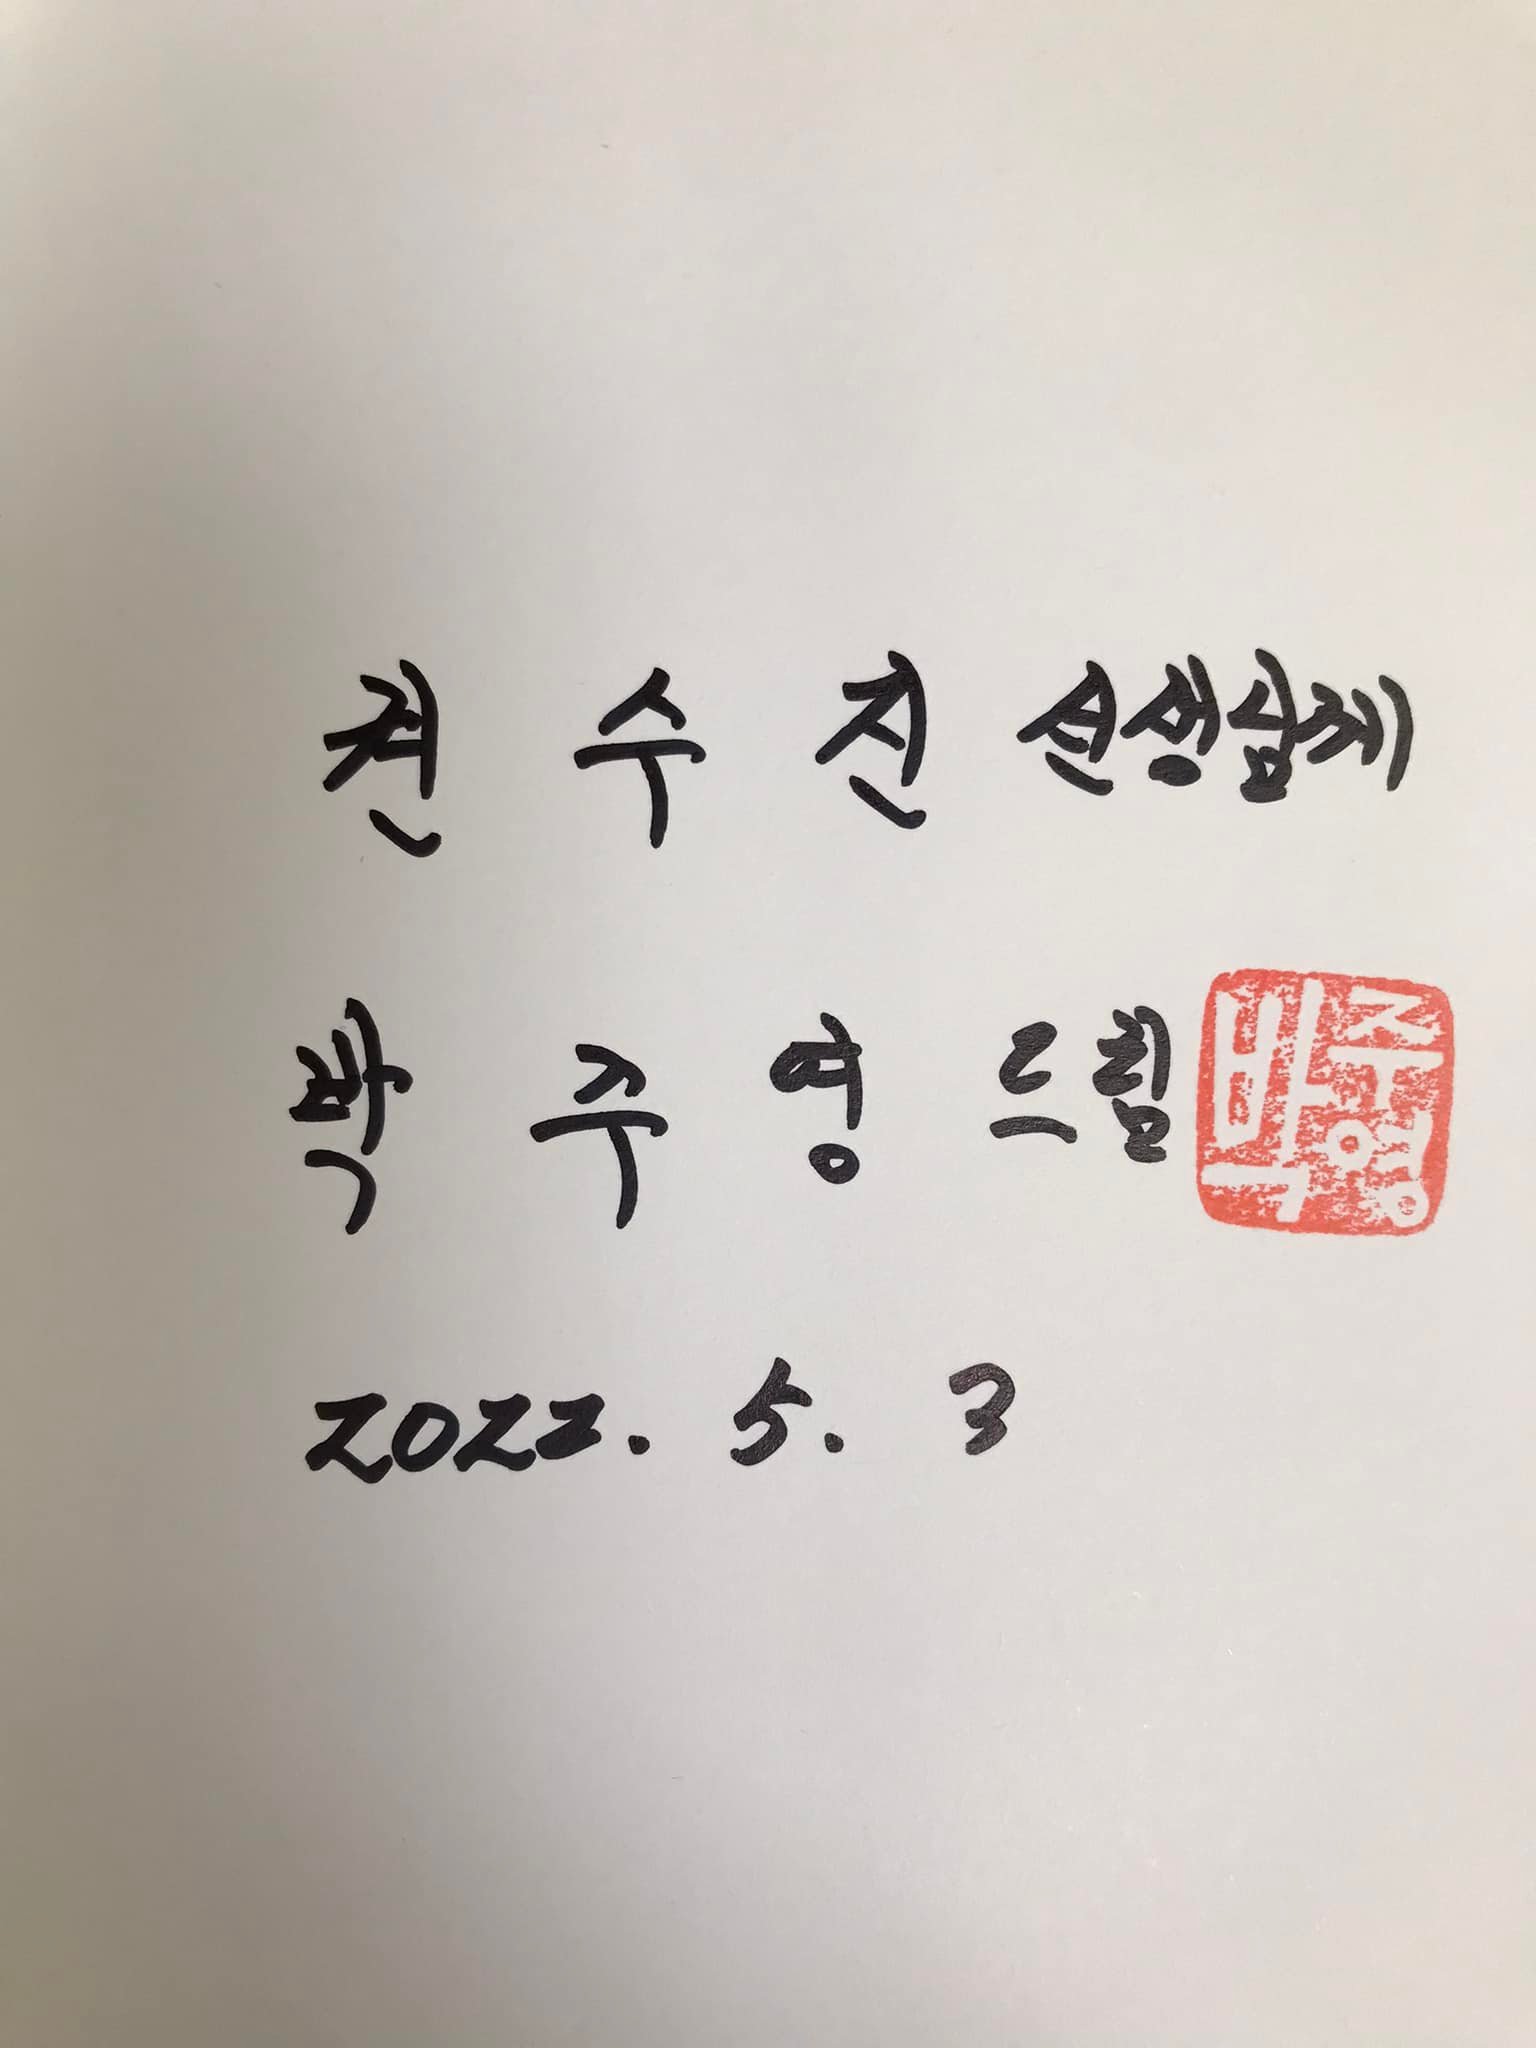 전수진 선생님께
박주영 드림
박주영
2022. 5. 3